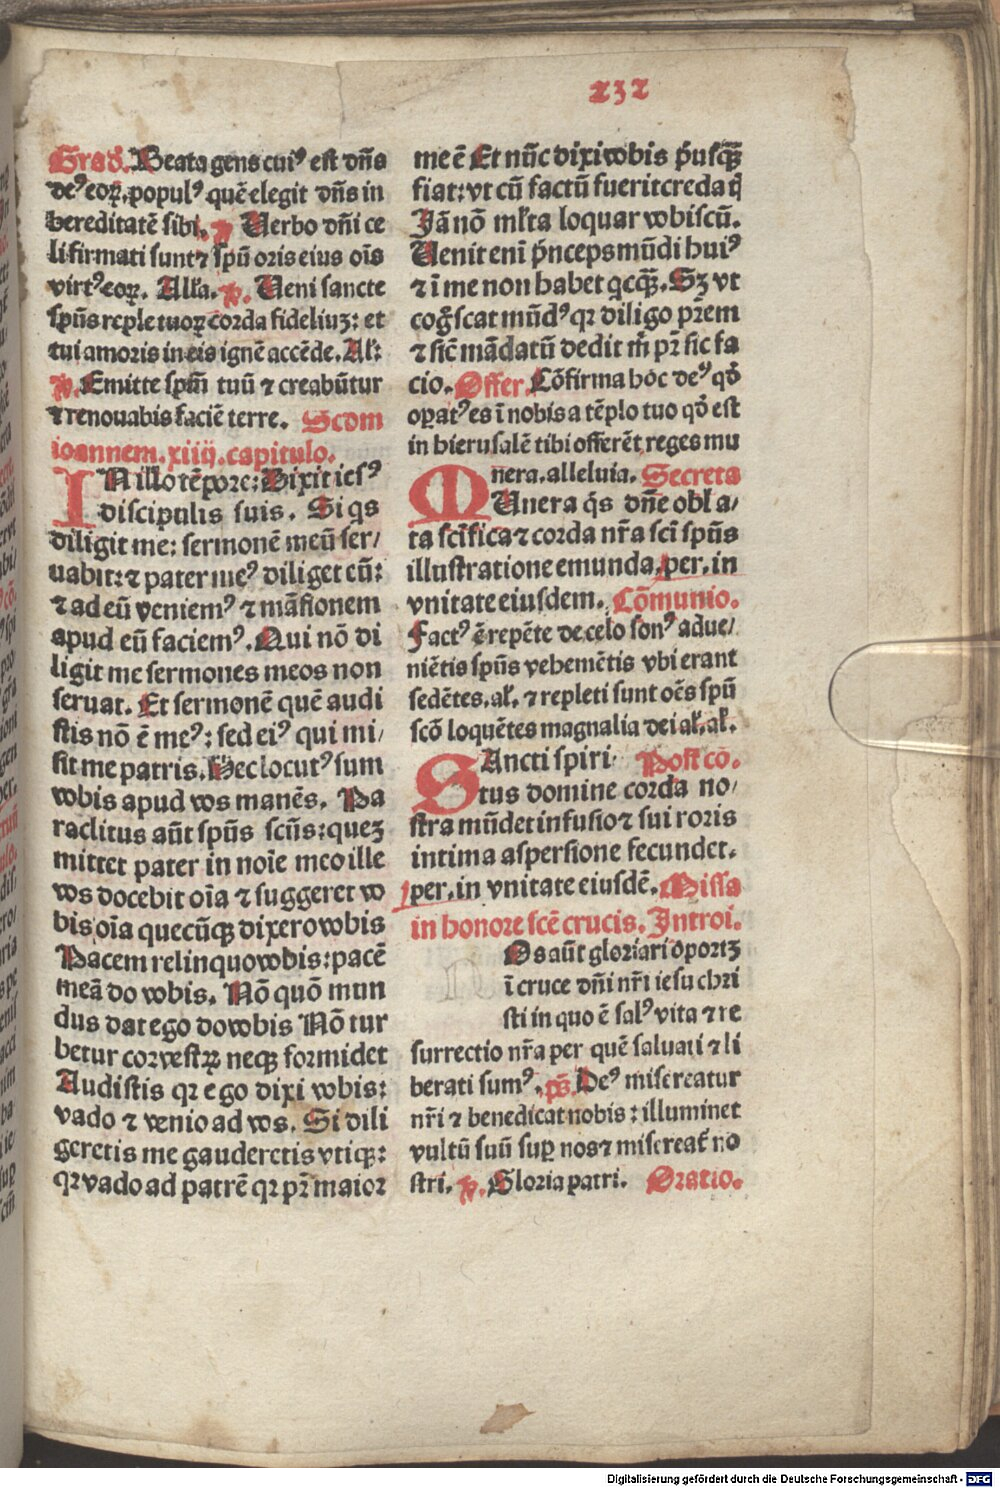 232
Grad̄. Beata gens cuiꝰ est dn̄s
deꝰ eoꝝ, populꝰ quē elegit dn̄s in
hereditatē sibi. ℣. Uerbo dn̄i ce
li firmati sunt ⁊ spū oris eius oīs
virtꝰ eoꝝ. Alľa. ℣. Ueni sancte
spūs reple tuoꝝ corda fideliuꝫ: et
tui amoris in eis ignē accēde. Aľ:
℣. Emitte spm̄ tuū ⁊ creabūtur
⁊ renouabis faciē terre. Scdm
ioannem. xiiij. capitulo.
IN illo tēpore: Dixit iesꝰ
discipulis suis. Si qs
diligit me: sermonē meū ser/
uabit: ⁊ pater meꝰ diliget eū:
⁊ ad eū veniemꝰ ⁊ māsionem
apud eū faciemꝰ. Qui nō di
ligit me sermones meos non
seruat. Et sermonē quē audi
stis nō ē meꝰ: sed eiꝰ qui mi/
sit me patris. Hec locutꝰ sum
vobis apud vos manēs. Pa
raclitus aūt spūs scūs: queꝫ
mittet pater in noīe meo ille
vos docebit oīa ⁊ suggeret vo
bis oīa quecūqꝫ dixero vobis
Pacem relinquo vobis: pacē
meā do vobis. Nō quō mun
dus dat ego do vobis Nō tur
betur cor vestrꝝ neqꝫ formidet
Audistis qꝛ ego dixi vobis:
vado ⁊ venio ad vos. Si dili
geretis me gauderetis vtiqꝫ:
qꝛ vado ad patrē qꝛ pr̄ maior
me ē Et nūc dixi vobis p̄usqꝫ̄
fiat: vt cū factū fuerit credatꝭ
Jā nō mľta loquar vobiscū.
Uenit enī p̄nceps mūdi huiꝰ
⁊ ī me non habet qcqꝫ̄. Sꝫ vt
coḡscat mūdꝰ qꝛ diligo pr̄em
⁊ sic̄ mādatū dedit m̄ pr̄ sic fa
cio. Offer. Cōfirma hoc deꝰ qḋ
opatꝰ es ī nobis a tēplo tuo qḋ est
in hierusalē tibi offerēt reges mu
nera. alleluia. Secreta
MUnera q̄s dn̄e obla/
ta sc̄ifica ⁊ corda nr̄a sc̄i spūs
illustratione emunda. per. in
vnitate eiusdem. Cōmunio.
Factꝰ ē repēte de celo sonꝰ adue/
niētis spūs vehemētis vbi erant
sedētes. aľ. ⁊ repleti sunt oēs spū
scō loquētes magnalia dei aľ. aľ.
SAncti spiri/ Post cō.
tus domine corda no/
stra mūdet infusio ⁊ sui roris
intima aspersione fecundet.
per. in vnitate eiusdē. Missa
in honore scē crucis. Introi.
Os aūt gloriari oportꝫ
ī cruce dn̄i nr̄i iesu chri
sti in quo ē salꝰ vita ⁊ re
surrectio nr̄a per quē saluati ⁊ li
berati sumꝰ. ps̄. Deꝰ misereatur
nr̄i ⁊ benedicat nobis: illuminet
vultū suū sup nos ⁊ misereat̄ no
stri. ℣. Gloria patri. Oratio.
Digitalisierung gefördert durch die Deutsche Forschungsgemeinschaft - DFG